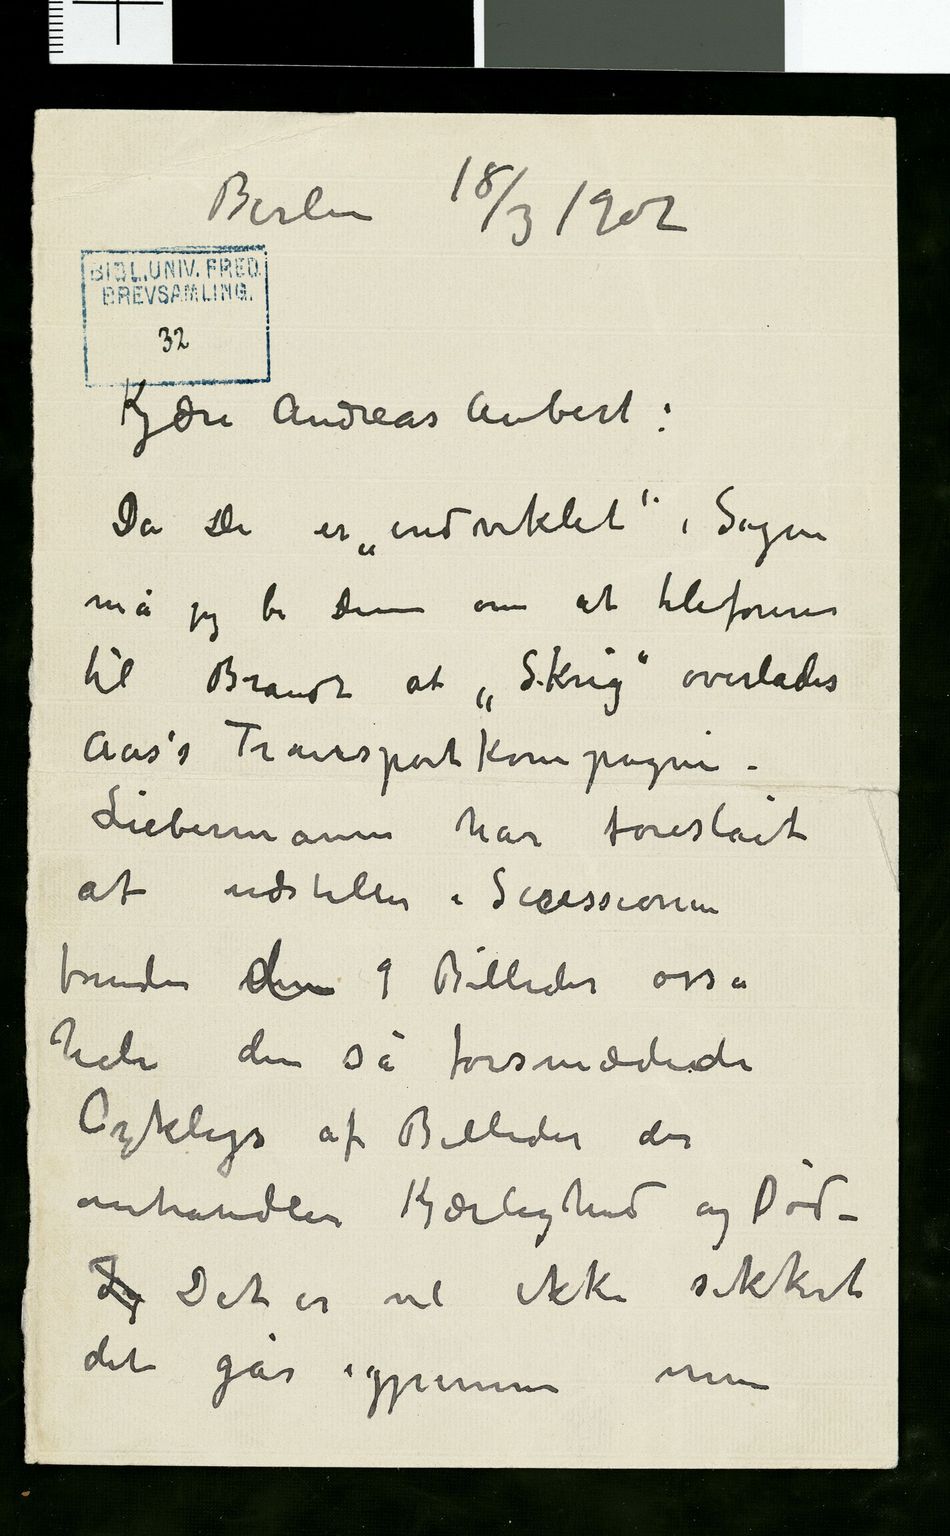 Berlin 18/3 1902
BIBL. UNIV. FRED.
BREVSAMLING.
32
Kjære Andreas Aubert:
Da De er „indviklet“ i Sagen
må jeg be Dem om at telefonere
til Brandt at „Skrig“ overlades
Aas's Transportkompagni –
Liebermann har foreslåit
at udstille i Secessionen
foruden dem 9 Billeder også
hele den så forsmædede
Cyklys af Billeder der
omhandler Kjærlighed og Død –
Jeg Det er vel ikke sikkert
det går igjennem men